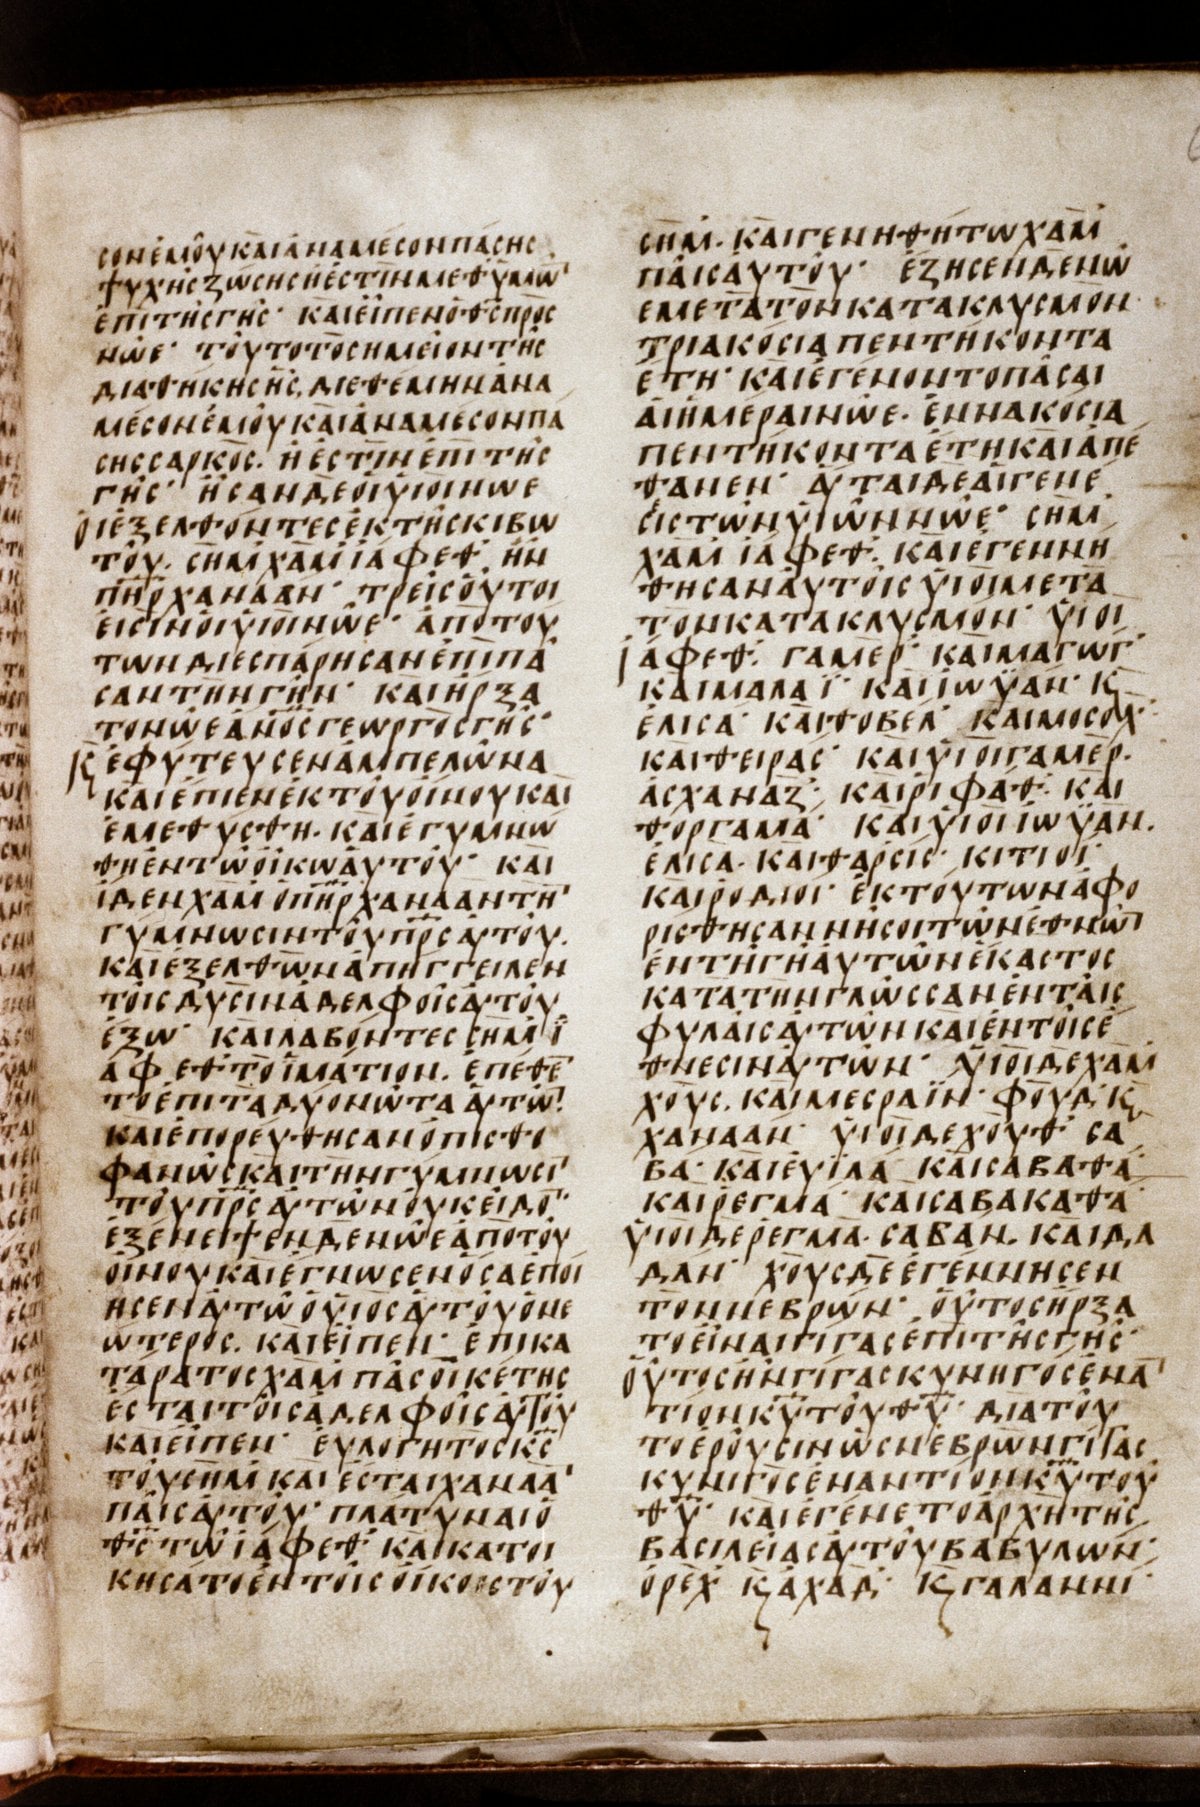 ϲονἐμοῦκαὶἀναμέϲονπάϲηϲ
ψυχῆϲζώϲηϲἡἐϲτὶνμεθὑμῶ̅
ἐπὶτῆϲγῆϲ· καὶεἶπενὁθ̅ϲ̅πρὸϲ
νῶε· τοῦτοτὸϲημεῖοντῆϲ
διαθήκηϲἧϲ, διεθέμηνἀνα
μέϲονἐμοῦκαὶἀναμέϲονπά
ϲηϲϲαρκὸϲ. ἥἐϲτινἐπὶτῆϲ
γῆϲ· ἦϲανδεοἱὑιοὶνωε
ὁιἐξελθόντεϲἐκτῆϲκιβω
τοῦ. ϲὴμχὰμἰάφεθ· ἦν
π̅η̅ρ̅χαναάν· τρεῖϲοὗτοι
εἰϲὶνοἱὑιοὶνῶε· ἀπὸτού
τωνδιεϲπάρηϲανἐπὶπᾶ
ϲαντὴνγῆν· καὶἤρξα
τονῶεα̅ν̅ο̅ϲ̅γεωργὸϲγῆϲ·
Ϗἐφύτευϲενἀμπελῶνα
καὶἔπιενἐκτοῦοἴνουκαὶ
ἐμεθύϲθη. καὶἐγυμνώ
θηἐντῶοἴκωἀυτοῦ· καὶ
ἴδενχὰμὁπ̅η̅ρ̅χαναὰντὴ̅
γύμνωϲιντοῦπ̅ρ̅ϲ̅ἀυτοῦ.
καὶἐξελθὼνἀπήγγειλεν
τοῖϲδυϲὶνἀδελφοῖϲἀυτοῦ
ἔξω· καὶλαβόντεϲϲὴμἰ
άφεθτὸἱμάτιον. ἐπέθε̅
τοἐπιτὰδυονῶταἀυτῶ̅·
καὶἐπορεύθηϲανὀπιϲθο
φανῶϲκαὶτὴνγυμνωϲι̅
τοῦπ̅ρ̅ϲ̅ἀυτῶνοὐκεἶδο̅·
ἐξένειψενδενῶεἀποτοῦ
οἴνουκαὶἔγνωϲενὅϲαἐποί
ηϲενἀυτῶὁὑιὸϲἀυτοῦὁνε
ώτεροϲ. καὶεἶπεν· ἐπικα
τάρατοϲχὰμπαῖϲοἰκέτηϲ
ἔϲταιτοῖϲἀδελφοῖϲἀυτοῦ
καὶεἶπεν· ἐυλογητὸϲκ̅ϲ̅
τοῦϲὴμκαὶἔϲταιχαναὰ̅
παῖϲἀυτοῦ· πλατύναιὁ
θ̅ϲ̅τῶἰάφεθ· καὶκατοι
κηϲάτοἐντοῖϲοἴκοιϲτοῦ
ϲὴμ. καὶγενηθήτωχὰμ
παῖϲἀυτοῦ· ἔζηϲενδενῶ
εμετὰτὸνκατακλυϲμὸν·
τριακόϲιαπεντήκοντα
ἔτη· καὶἐγένοντοπᾶϲαι
ἁιἡμέραινῶε. ἐννακόϲια
πεντήκονταἔτηκαὶἀπέ
θανεν· ἁυταιδεἁιγενέ
ϲιϲτῶνὑιῶννῶε· ϲὴμ
χὰμἰάφεθ. καὶἐγεννή
θηϲανἀυτοῖϲὑιοὶμετὰ
τὸνκατακλυϲμὸν· ὑιοι
ἰάφεθ. γαμὲρ· καὶμαγώγ
καὶμαλαΐ· καὶἰωϋάν· Ϗ
ἐλιϲά· καὶθοβὲλ· καὶμοϲόχ·
καιθειραϲ· καιὑιοιγαμερ.
ἀϲχανὰζ· καὶριφάθ. καὶ
θοργαμά· καὶὑιοιἰωϋὰν.
ἐλιϲὰ. καιθαρϲιϲ· κιτιοι·
καιρόδιοι· ἐκτούτωνἀφω
ρίϲθηϲαννῆϲοιτῶνἐθνῶ̅
ἐντῆγῆἀυτῶνἕκαϲτοϲ
κατατηνγλῶϲϲανἐνταῖϲ
φυλαῖϲἀυτῶνκαὶἐντοῖϲἔ
θνεϲινἀυτῶν· ὑιοιδεχὰμ
χοὺϲ. καιμεϲραῒν· φοὺδϏ
χαναάν· ὑιοὶδεχοὺθ· ϲα
βα· καιἐυϊλὰ· καὶϲαβαθὰ·
καιρεγμα· καιϲαβακαθὰ·
ὑιοιδερεγμὰ. ϲαβαν. καιδα
δαν· χοὺϲδεἐγέννηϲεν
τὸννεβρών· οὗτοϲἤρξα
τοεἶναιγίγαϲἐπὶτῆϲγῆϲ·
ὁυτοϲἦνγίγαϲκυνηγὸϲἐνα̅
τίονκ̅υ̅τοῦθ̅υ̅· διατοῦ
τοἐροῦϲινὡϲνεβρὼνγίγαϲ
κυνιγὸϲἐναντίονκ̅υ̅τοῦ
θ̅υ̅· καὶἐγένετοἀρχὴτῆϲ
βαϲιλείαϲἀυτοῦβαβυλών·
ὀρὲχ Ϗἀχὰδ· Ϗγαλαννί·